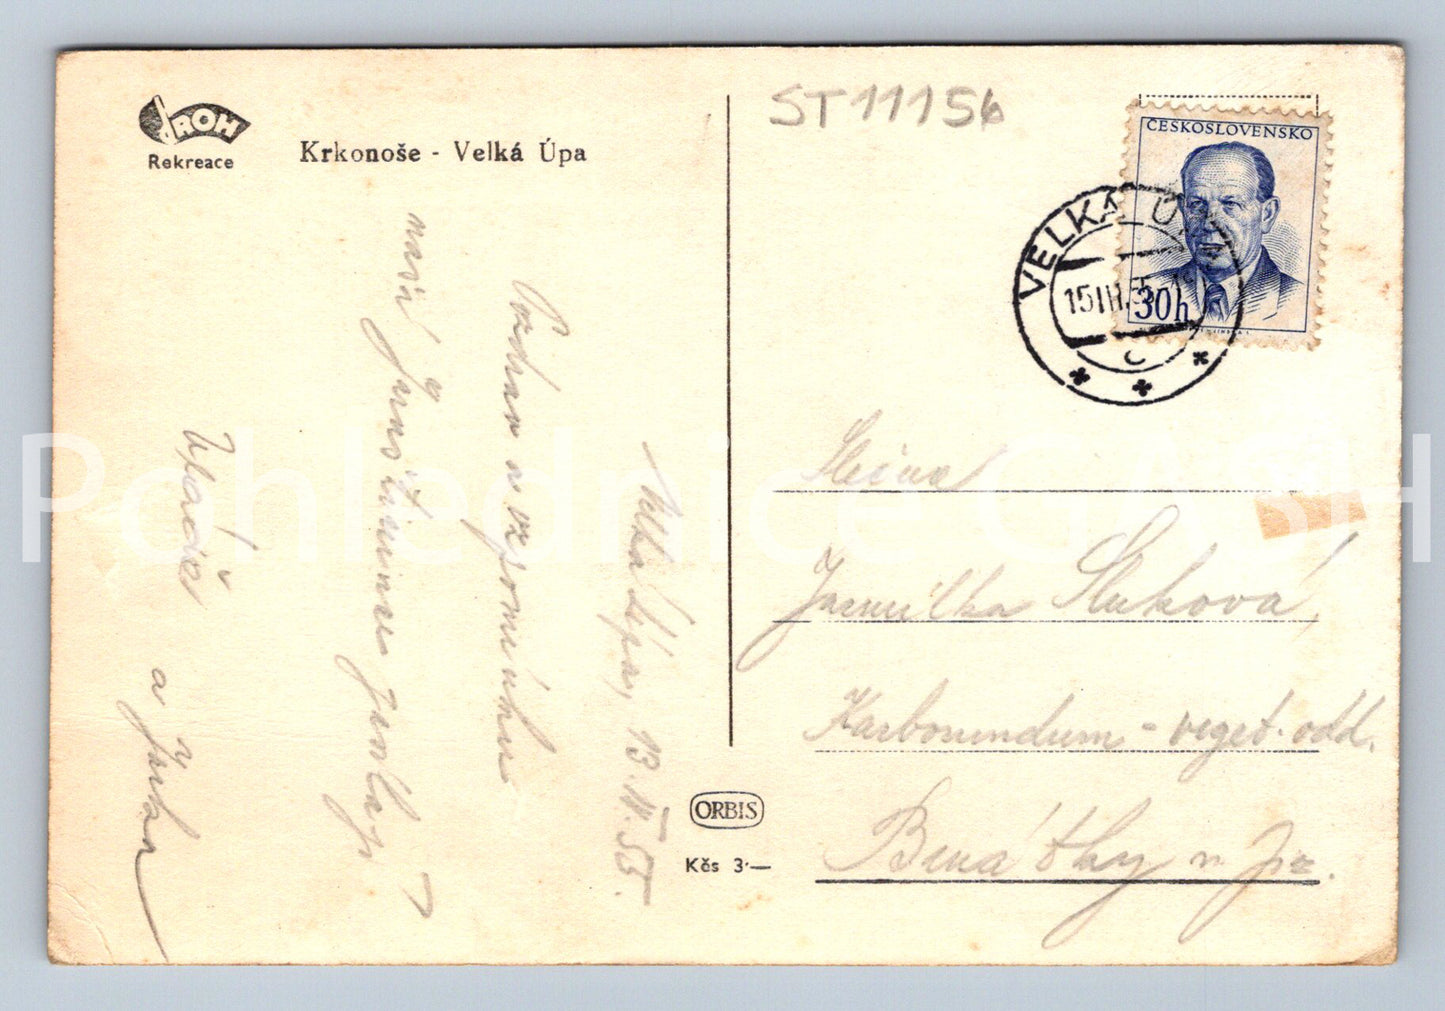 ROH
Rekreace
Krkonoše - Velká Úpa
ST11156
ČESKOSLOVENSKO
30h
VELKÁ ÚPA
15.III.55
Velká Úpa, 13. II. 55.
Pozdrav a vzpomínku
naší
a Jirka
Jarmilka Sluková,
Karborundum - veget. odd.
Benátky n. Jiz.
ORBIS
Kčs 3·—
Pohlednice GASH